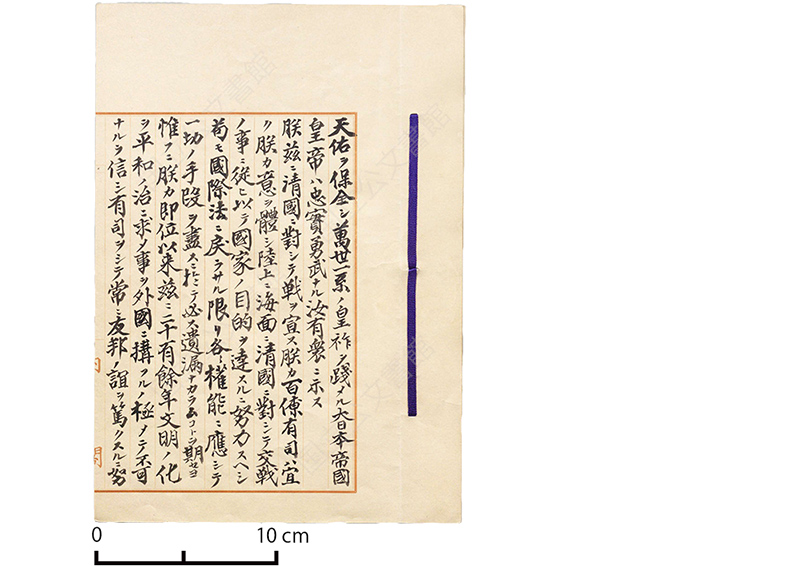 天佑ヲ保全シ萬世一系ノ皇祚ヲ踐メル大日本帝國
皇帝ハ忠實勇武ナル汝有衆ニ示ス
朕茲ニ清國ニ對シテ戰ヲ宣ス朕カ百僚有司ハ宜
ク朕カ意ヲ體シ陸上ニ海面ニ清國ニ對シテ交戰
ノ事ニ從ヒ以テ國家ノ目的ヲ達スルニ努力スヘシ
苟モ國際法ニ戾ラサル限リ各〻權能ニ應シテ
一切ノ手段ヲ盡スニ於テ必ス遺漏ナカラムコトヲ期セヨ
惟フニ朕カ即位以來茲ニ二十有餘年文明ノ化
ヲ平和ノ治ニ求メ事ヲ外國ニ構フルノ極メテ不可
ナルヲ信シ有司ヲシテ常ニ友邦ノ誼ヲ篤クスルニ努
内
閣
0
10 cm